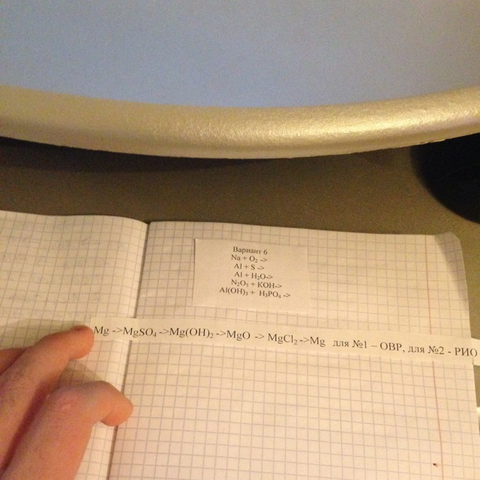 Вариант 6
Na + O₂ ->
Al + S ->
Al + H₂O->
N₂O₃ + KOH->
Al(OH)₃ + H₃PO₄ ->
Mg ->MgSO₄ ->Mg(OH)₂ ->MgO -> MgCl₂ ->Mg для №1 – ОВР, для №2 - РИО